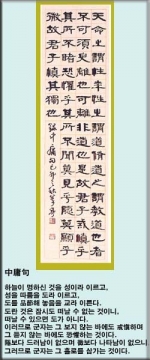 天命之謂性率性之謂道修道之謂教道也者
不可須臾離也可離非道也是故君子戒愼乎
其所不睹恐懼乎其所不聞莫見乎隱莫顯乎
微故君子愼其獨也
中庸句
하늘이 명하신 것을 성이라 이르고,
성을 따름을 도라 이르고,
도를 품절해 놓음을 교라 이른다.
도란 것은 잠시도 떠날 수 없는 것이니,
떠날 수 있으면 도가 아니다.
이러므로 군자는 그 보지 않는 바에도 戒愼하며
그 듣지 않는 바에도 공구하는 것이다.
隱보다 드러남이 없으며 微보다 나타남이 없으니
그러므로 군자는 그 홀로를 삼가는 것이다.